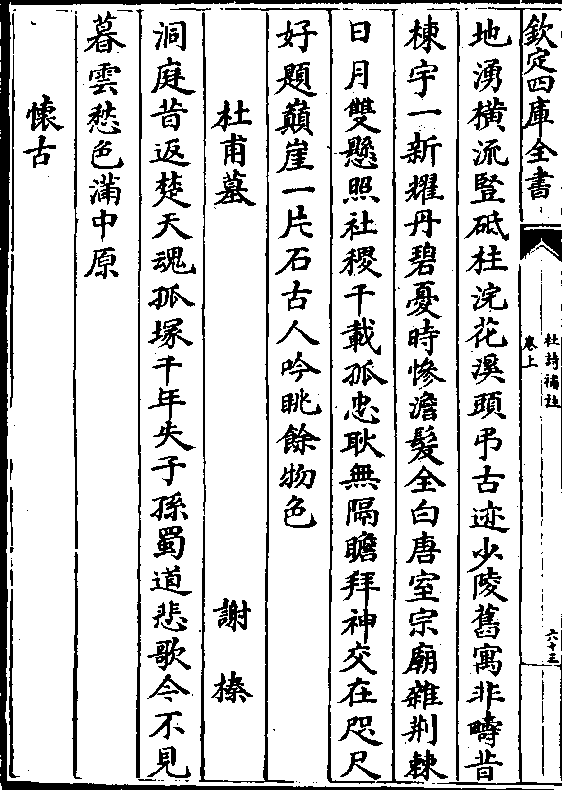 欽定四庫全書
杜詩補註
卷上
六十三
地湧橫流豎砥柱浣花溪頭弔古迹少陵舊寓非疇昔
棟宇一新耀丹碧憂時慘澹髮全白唐室宗廟雜荆棘
日月雙懸照社稷千載孤忠耿無隔瞻拜神交在咫尺
好題巔崖一片石古人吟眺餘物色
杜甫墓 謝榛
洞庭昔返楚天魂孤塚千年失子孫蜀道悲歌今不見
暮雲愁色滿中原
懷古